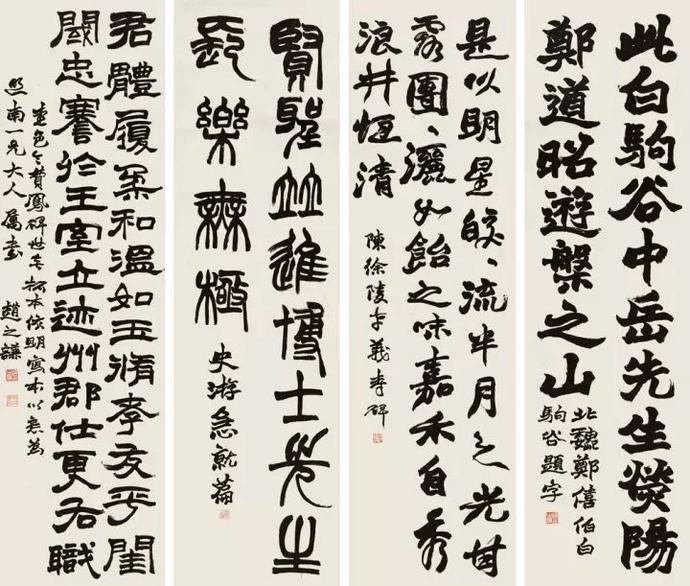 此白駒谷中岳先生熒陽
鄭道昭遊槃之山
北魏鄭僖伯白
駒谷題字
是以明星皎〻流半月之光甘
露團〻灑如飴之味嘉禾自秀
浪井恆清
陳徐陵孝義寺碑
賢聖並進博士先生
長樂無極
史游急就篇
君體履柔和溫如玉脩孝友乎閨
閾忠謇於王室立迹州郡仕更右職
堂邑令費鳳碑世本依明寫本以意為
南一兄大人屬書 趙之謙